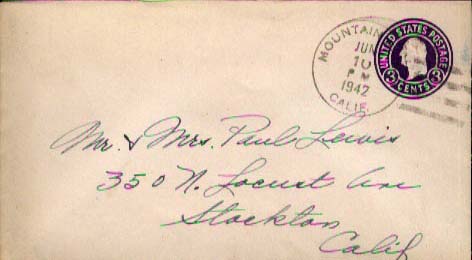 MOUNTAIN
JUN
10
P M
1942
CALIF.
UNITED STATES POSTAGE
3 CENTS 3
Mr. & Mrs. Paul Lewis
350 N. Locust Ave
Stockton
Calif